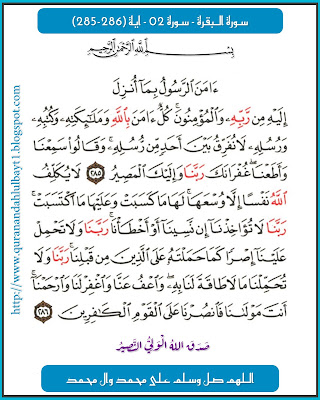 سورة البقرة - سورة 02 - اية (286-285)
بِسْمِ ٱللَّهِ ٱلرَّحْمَٰنِ ٱلرَّحِيمِ
ءَامَنَ ٱلرَّسُولُ بِمَآ أُنزِلَ
إِلَيْهِ مِن رَّبِّهِۦ وَٱلْمُؤْمِنُونَ ۚ كُلٌّ ءَامَنَ بِٱللَّهِ وَمَلَٰٓئِكَتِهِۦ وَكُتُبِهِۦ
وَرُسُلِهِۦ لَا نُفَرِّقُ بَيْنَ أَحَدٍ مِّن رُّسُلِهِۦ ۚ وَقَالُوا۟ سَمِعْنَا
وَأَطَعْنَا ۖ غُفْرَانَكَ رَبَّنَا وَإِلَيْكَ ٱلْمَصِيرُ ٢٨٥ لَا يُكَلِّفُ
ٱللَّهُ نَفْسًا إِلَّا وُسْعَهَا ۚ لَهَا مَا كَسَبَتْ وَعَلَيْهَا مَا ٱكْتَسَبَتْ ۗ
رَبَّنَا لَا تُؤَاخِذْنَآ إِن نَّسِينَآ أَوْ أَخْطَأْنَا ۚ رَبَّنَا وَلَا تَحْمِلْ
عَلَيْنَآ إِصْرًا كَمَا حَمَلْتَهُۥ عَلَى ٱلَّذِينَ مِن قَبْلِنَا ۚ رَبَّنَا وَلَا
تُحَمِّلْنَا مَا لَا طَاقَةَ لَنَا بِهِۦ ۖ وَٱعْفُ عَنَّا وَٱغْفِرْ لَنَا وَٱرْحَمْنَآ ۚ
أَنتَ مَوْلَىٰنَا فَٱنصُرْنَا عَلَى ٱلْقَوْمِ ٱلْكَٰفِرِينَ ٢٨٦
صدق الله الولي النصير
اللهم صل وسلم على محمد وال محمد
http://www.quranandahlulbayt1.blogspot.com